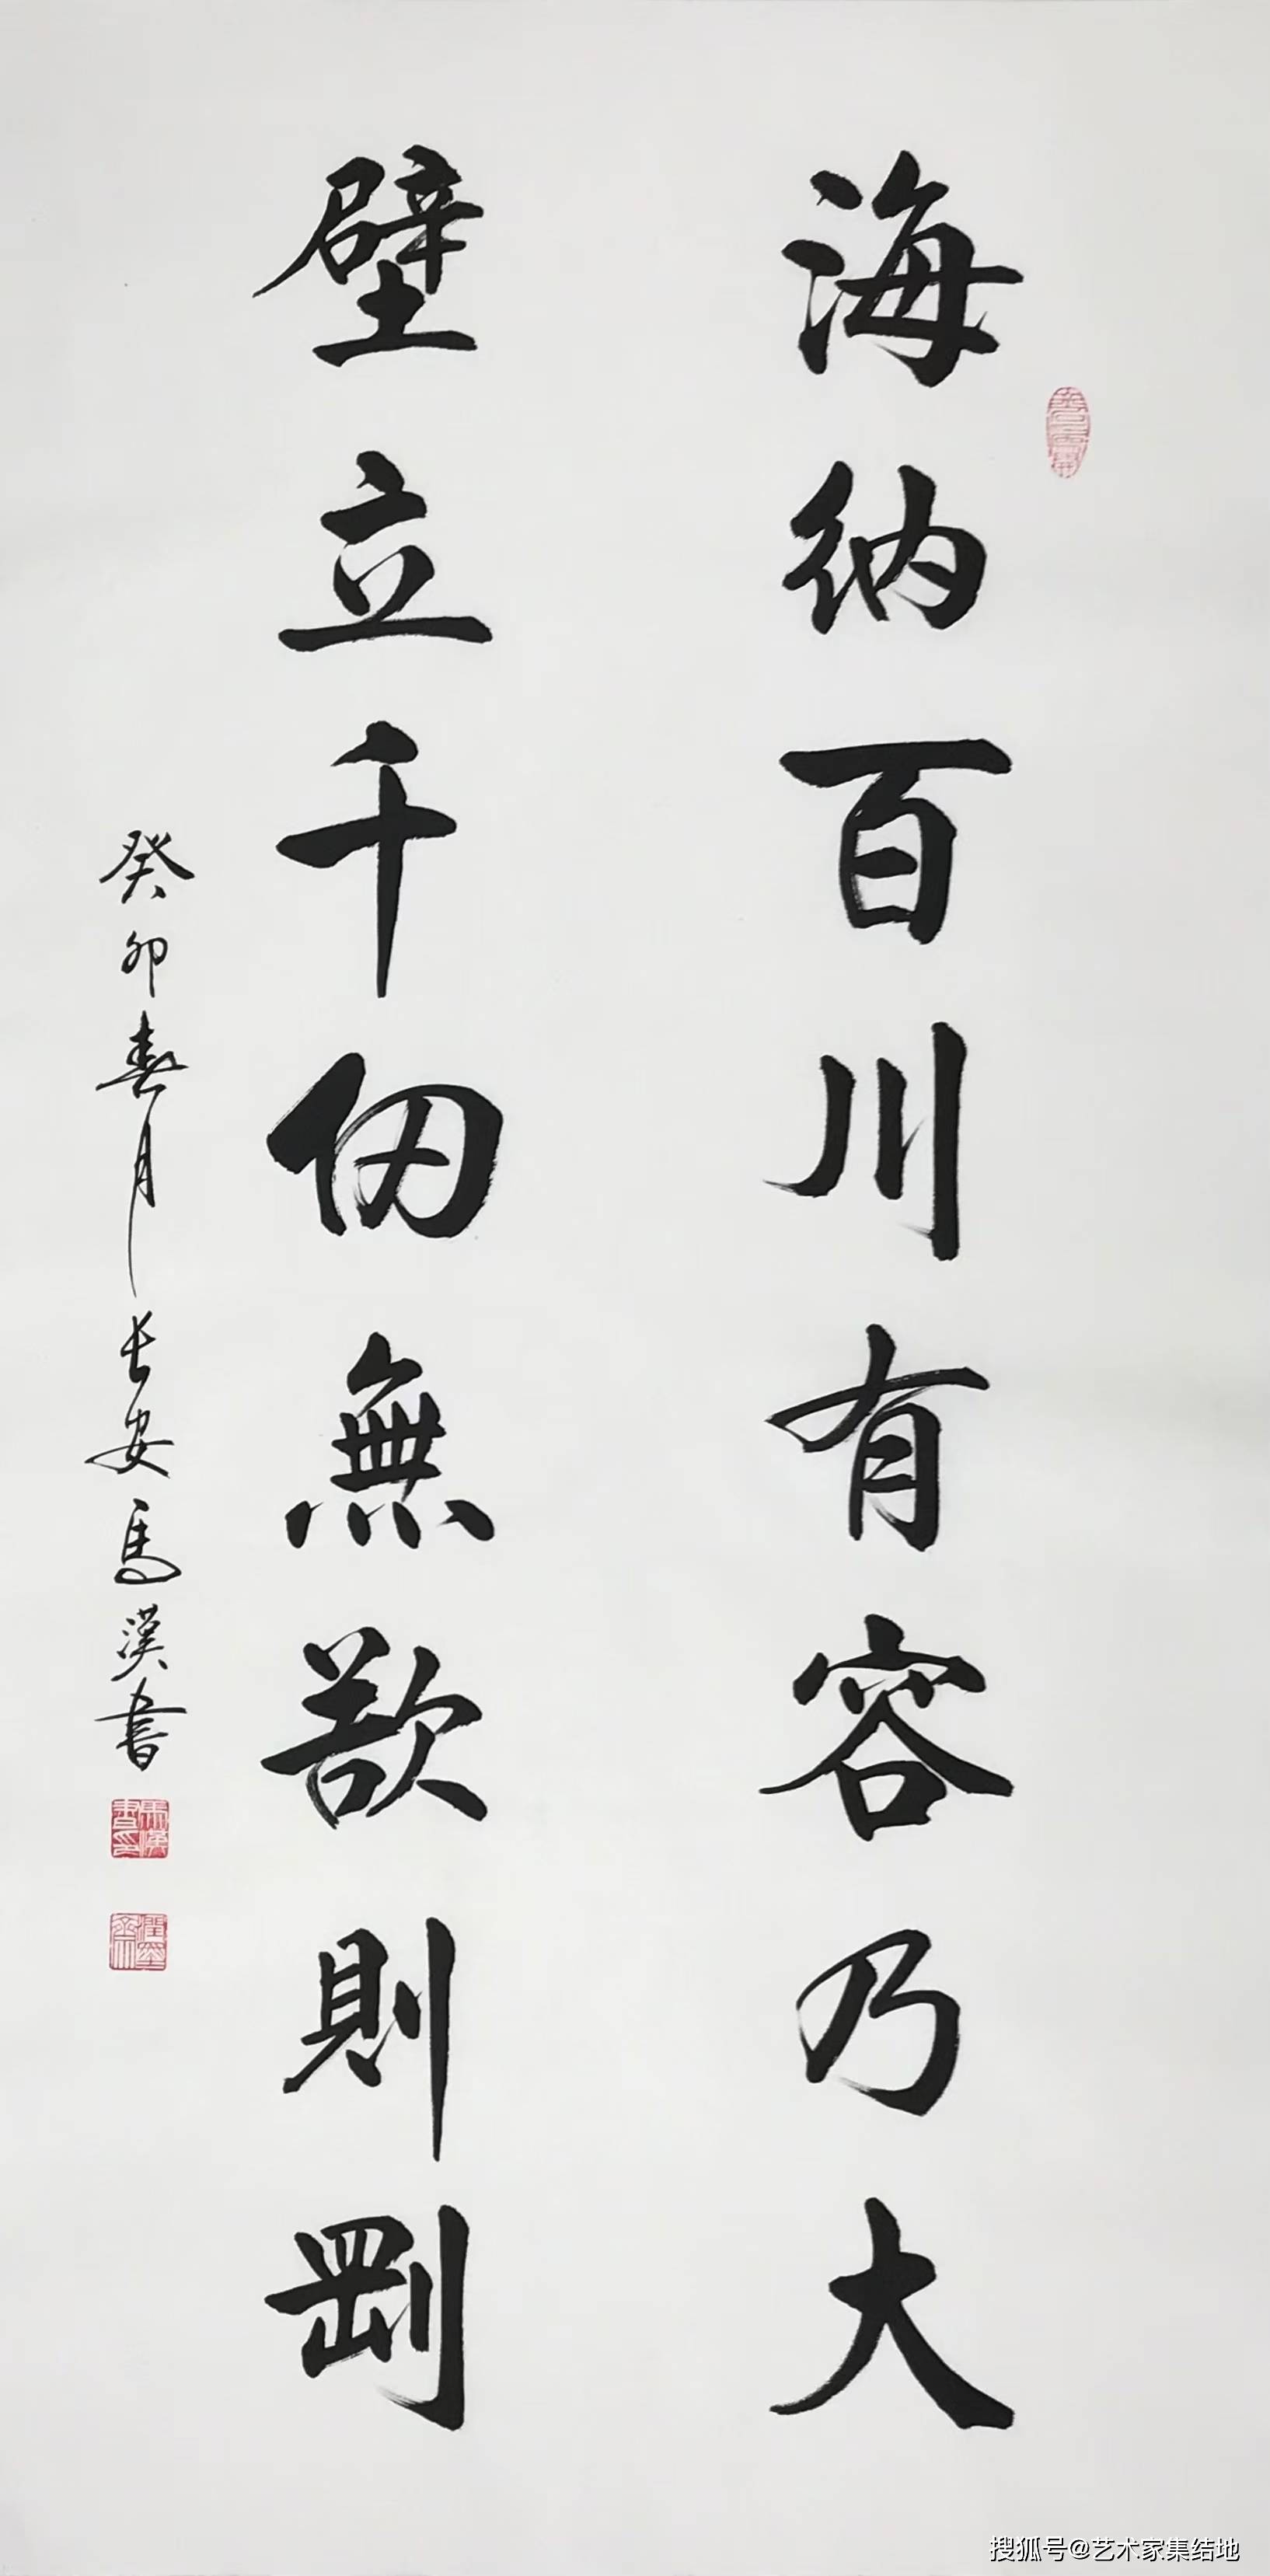 海納百川有容乃大
壁立千仞無欲則剛
癸卯春月長安馬漢書
馬漢書印
搜狐号@艺术家集结地